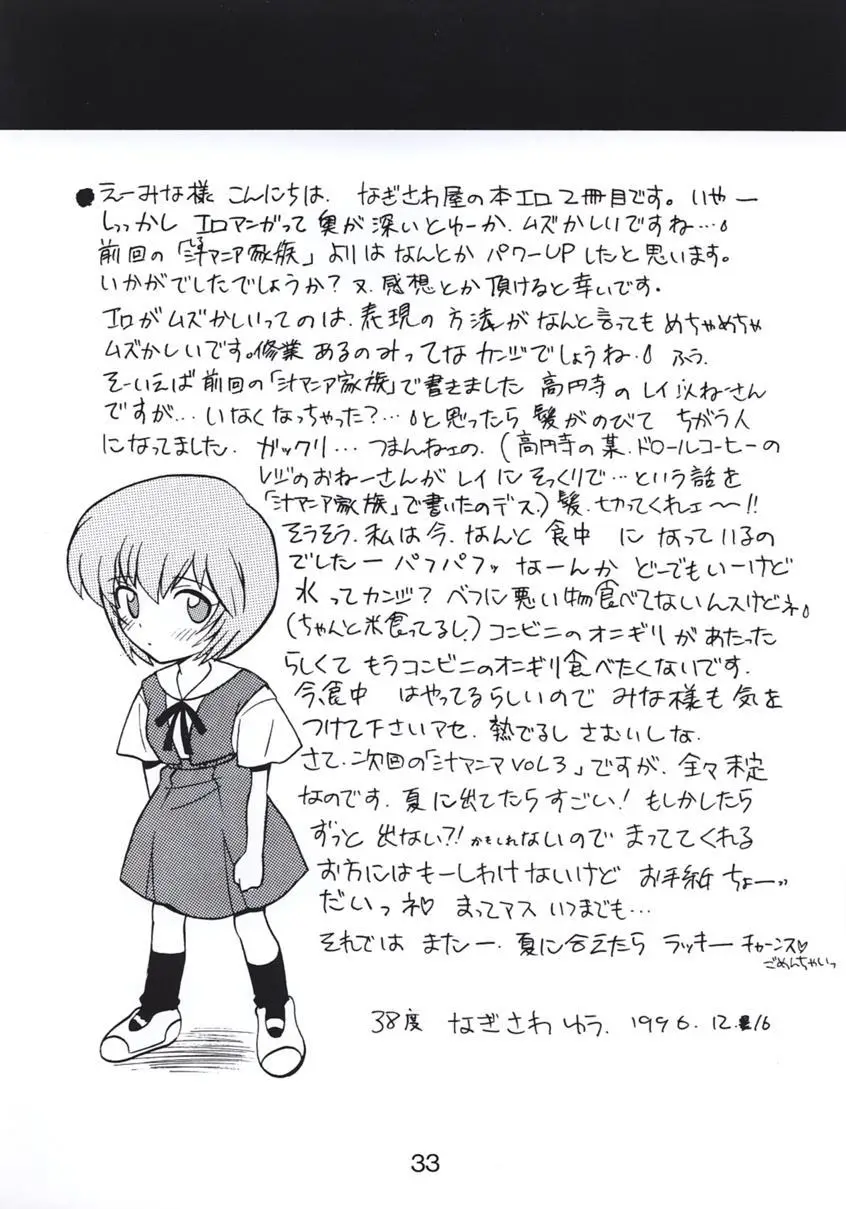 ●えーみな様 こんにちは、なぎさわ屋の本エロ2冊目です。いやー
しっかし エロマンガって奥が深いとゆーか、ムズかしいですね…。
前回の「汁マニア家族」よりは なんとか パワーUPしたと思います。
いかがでしたでしょうか？又、感想とか頂けると幸いです。
エロがムズかしいってのは、表現の方法がなんと言ってもめちゃめちゃ
ムズかしいです。修業あるのみってなカンジでしょうね。ふう。
そーいえば前回の「汁マニア家族」で書きました 高円寺のレイ似ねーさん
ですが…、いなくなっちゃった？…と思ったら 髪がのびて ちがう人
になってました。ガックリ… つまんねェの。(高円寺の某、ドロールコーヒーの
レジのおねーさんがレイにそっくりで…という話を
「汁マニア家族」で書いたのデス。) 髪、切ってくれェ〜!!
そうそう、私は今、なんと 食中 になっているの
でしたー パフパフッ なーんか どーでもいーけど
水ってカンジ？ べつに悪い物食べてないんスけどネ。
(ちゃんと米食ってるし。) コンビニのオニギリがあたった
らしくて もうコンビニのオニギリ食べたくないです。
今、食中 はやってるらしいので みな様も気を
つけて下さいアセ。熱でるし さむいしな。
さて、次回の「汁マニアVOL3」ですが、全々未定
なのです。夏に出てたらすごい！もしかしたら
ずっと 出ない?! かもしれないので まっててくれる
お方にはもーしわけないけど お手紙 ちょーッ
だいっネ♡ まってマス いつまでも…
それでは またー。夏に会えたら ラッキー チャーンス♡
ごめんちゃいっ
38度 なぎさわ ゆう. 1996. 12. 16
33